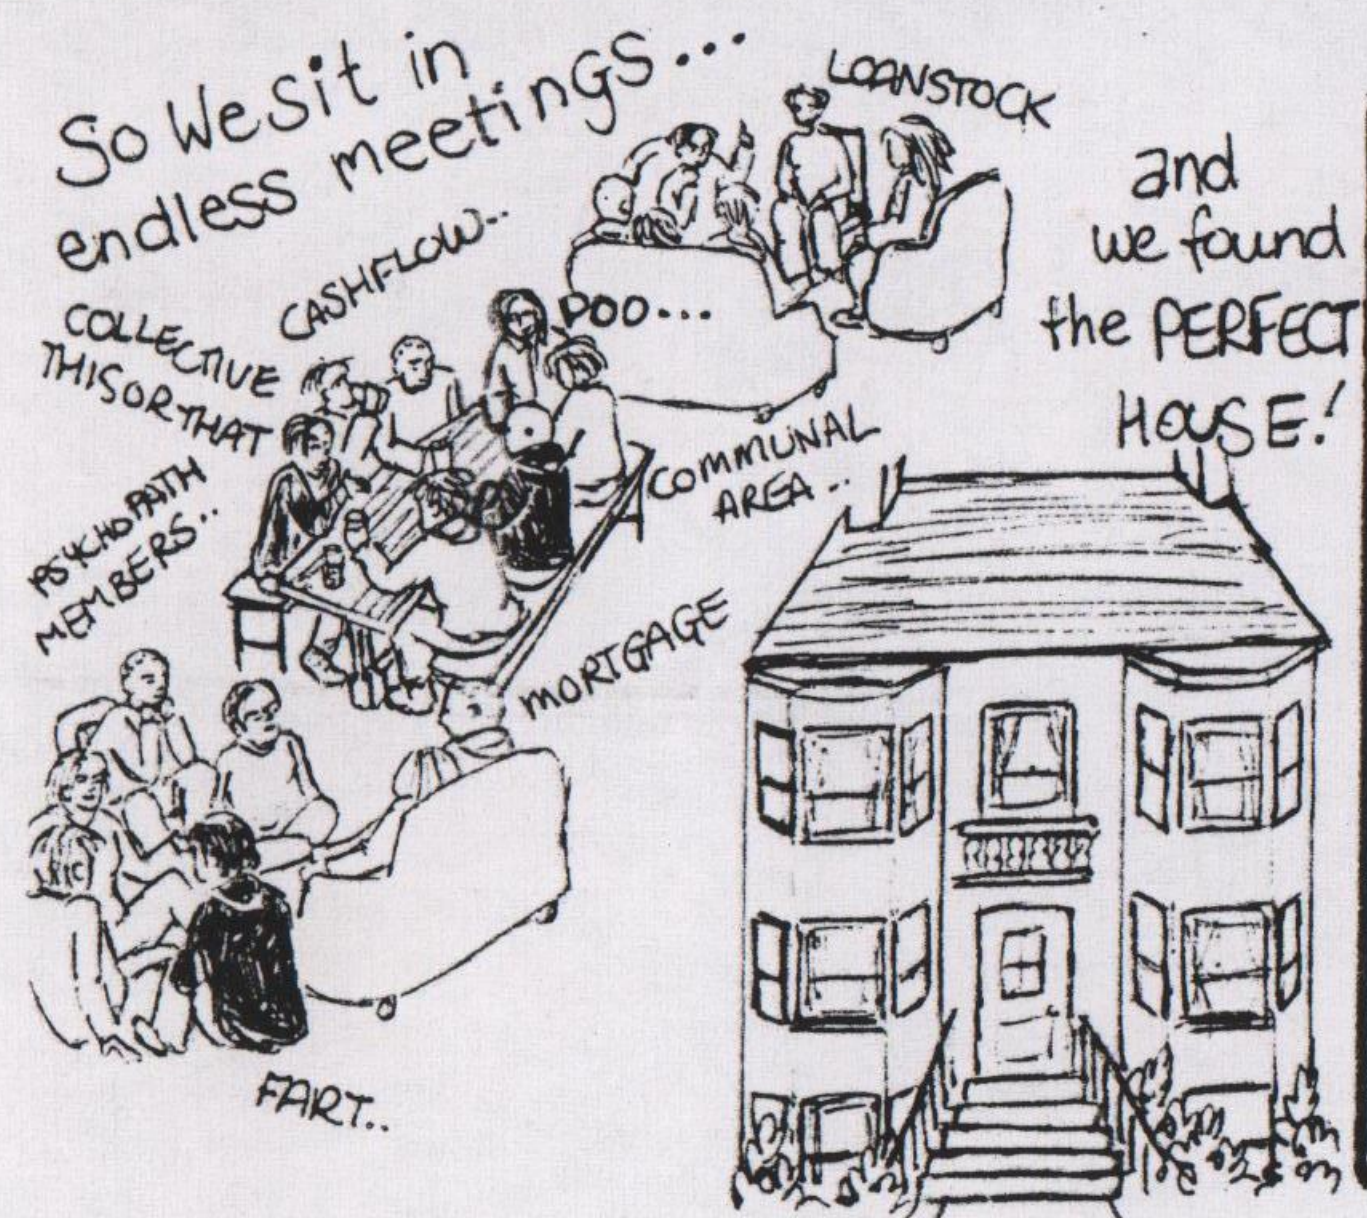 So We Sit in
endless meetings...
LOANSTOCK
CASHFLOW...
COLLECTIVE
THIS OR THAT
POO...
PSYCHOPATH
MEMBERS..
COMMUNAL
AREA..
MORTGAGE
FART..
and
we found
the PERFECT
HOUSE!